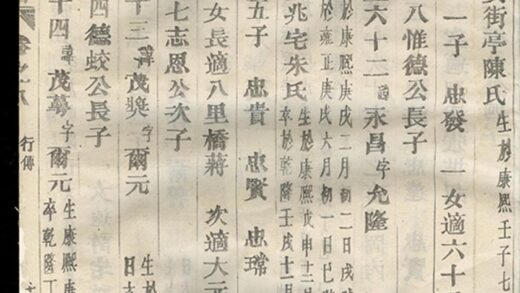 街亭陳氏 生於康熙壬子七
一子 忠發 一女適六十
八惟德公長子
六十二 諱 永昌 字 允隆
於康熙庚戌二月初二日戌時
於雍正庚戌六月初一日巳時
兆宅朱氏 生於康熙戊申十二月
卒於乾隆壬戌十一月
五子 忠貴 忠賢 忠瑺
女長適八里橋蔣 次適大元
七志恩公次子
十三 諱 茂獎 字 爾元
生於
四德蛟公長子
十四 諱 茂蕚 字 爾元 生康熙庚
卒乾隆丁
卷之八 行傳